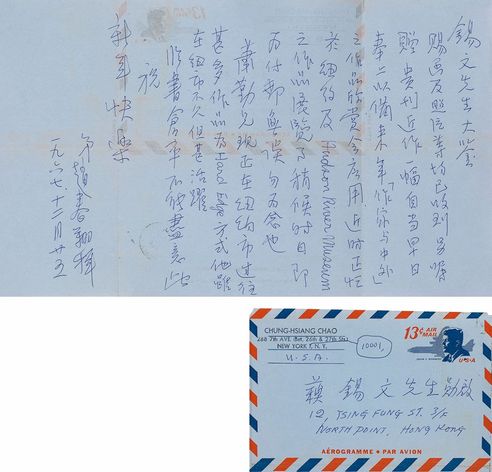 錫文先生大鑒
賜函及照片等均已收到另囑
贈貴刊近作一幅自當早日
奉上以備來年「作家與中外」
之作品欣賞 用近時正忙
於紐約及 Hudson River Museum
之作品展覽 稍候時日即
可付郵無誤勿為念也
蕭勤兄現正在紐約市過往
甚多作品為 Hard Edge 方式他雖
在紐市不久但甚活躍
臨書倉卒不能盡意此
祝
新年快樂
弟趙春翔拜
一九六七.十二月廿五
CHUNG-HSIANG CHAO
268 7th AVE. (Bet. 26th & 27th Sts.)
NEW YORK 1, N.Y.
10001,
U.S.A.
13¢ AIR MAIL
JOHN F. KENNEDY
USA
蘇錫文先生勛啟
12, TSING FUNG ST. 3/F
NORTH POINT, HONG KONG
AÉROGRAMME • PAR AVION